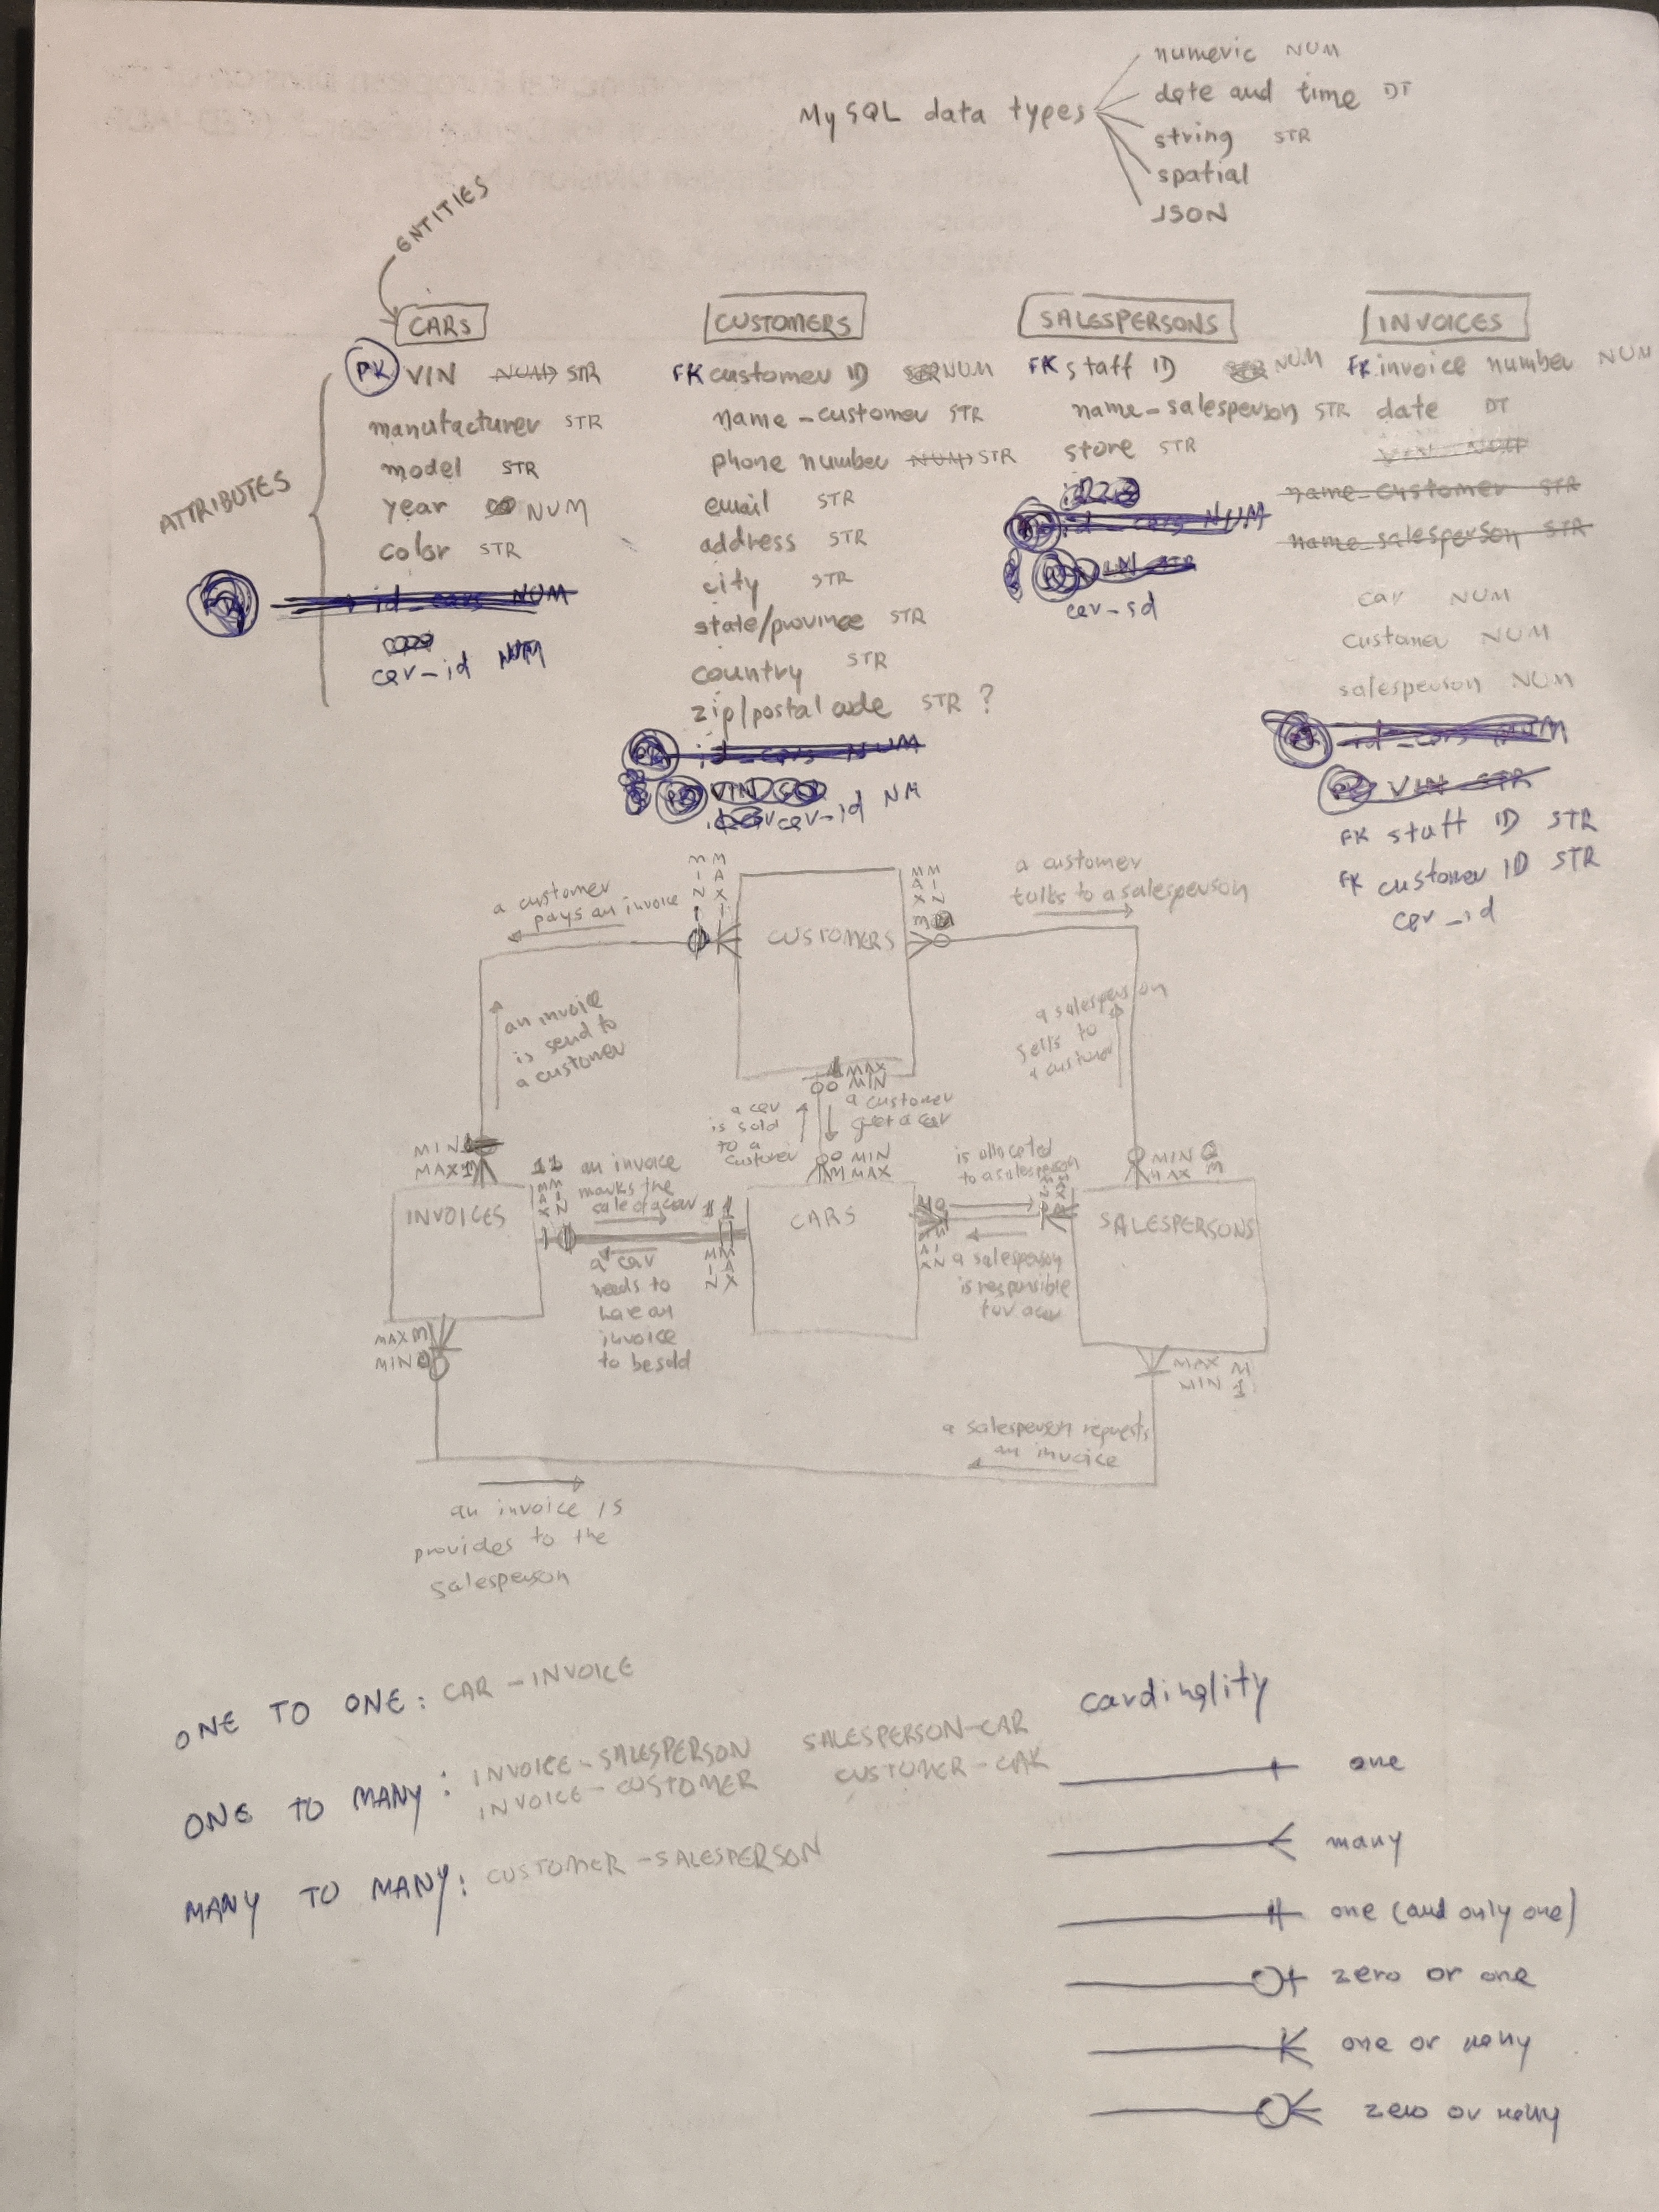 MySQL data types
numeric NUM
date and time DT
string STR
spatial
JSON
ENTITIES
ATTRIBUTES
CARS
PK VIN NUM STR
manufacturer STR
model STR
year NUM
color STR
id_cars NUM
car-id NUM
CUSTOMERS
FK customer ID NUM
name-customer STR
phone number NUM STR
email STR
address STR
city STR
state/province STR
country STR
zip/postal code STR ?
id_cars NUM
VIN
car-id NM
SALESPERSONS
FK staff ID NUM
name-salesperson STR
store STR
id_cars NUM
VIN STR
car-id
INVOICES
FK invoice number NUM
date DT
VIN NUM
name-customer STR
name-salesperson STR
car NUM
customer NUM
salesperson NUM
id_cars NUM
VIN STR
FK staff ID STR
FK customer ID STR
car_id
a customer
pays an invoice
MIN
MAX
CUSTOMERS
MAX
MIN
M
a customer
talks to a salesperson
an invoice
is send to
a customer
a salesperson
sells to
a customer
MAX
MIN
a car
is sold
to a
customer
a customer
get a car
MIN
M MAX
MIN
MAX
INVOICES
MAX
MIN
an invoice
marks the
sale of a car
a car
needs to
have an
invoice
to be sold
MIN
MAX
CARS
is allocated
to a salesperson
a salesperson
is responsible
for a car
MIN
MAX M
SALESPERSONS
MAX M
MIN
MAX M
MIN 1
a salesperson requests
an invoice
an invoice is
provides to the
salesperson
ONE TO ONE: CAR - INVOICE
ONE TO MANY: INVOICE - SALESPERSON SALESPERSON-CAR
INVOICE - CUSTOMER CUSTOMER - CAR
MANY TO MANY: CUSTOMER - SALESPERSON
cardinality
one
many
one (and only one)
zero or one
one or many
zero or many